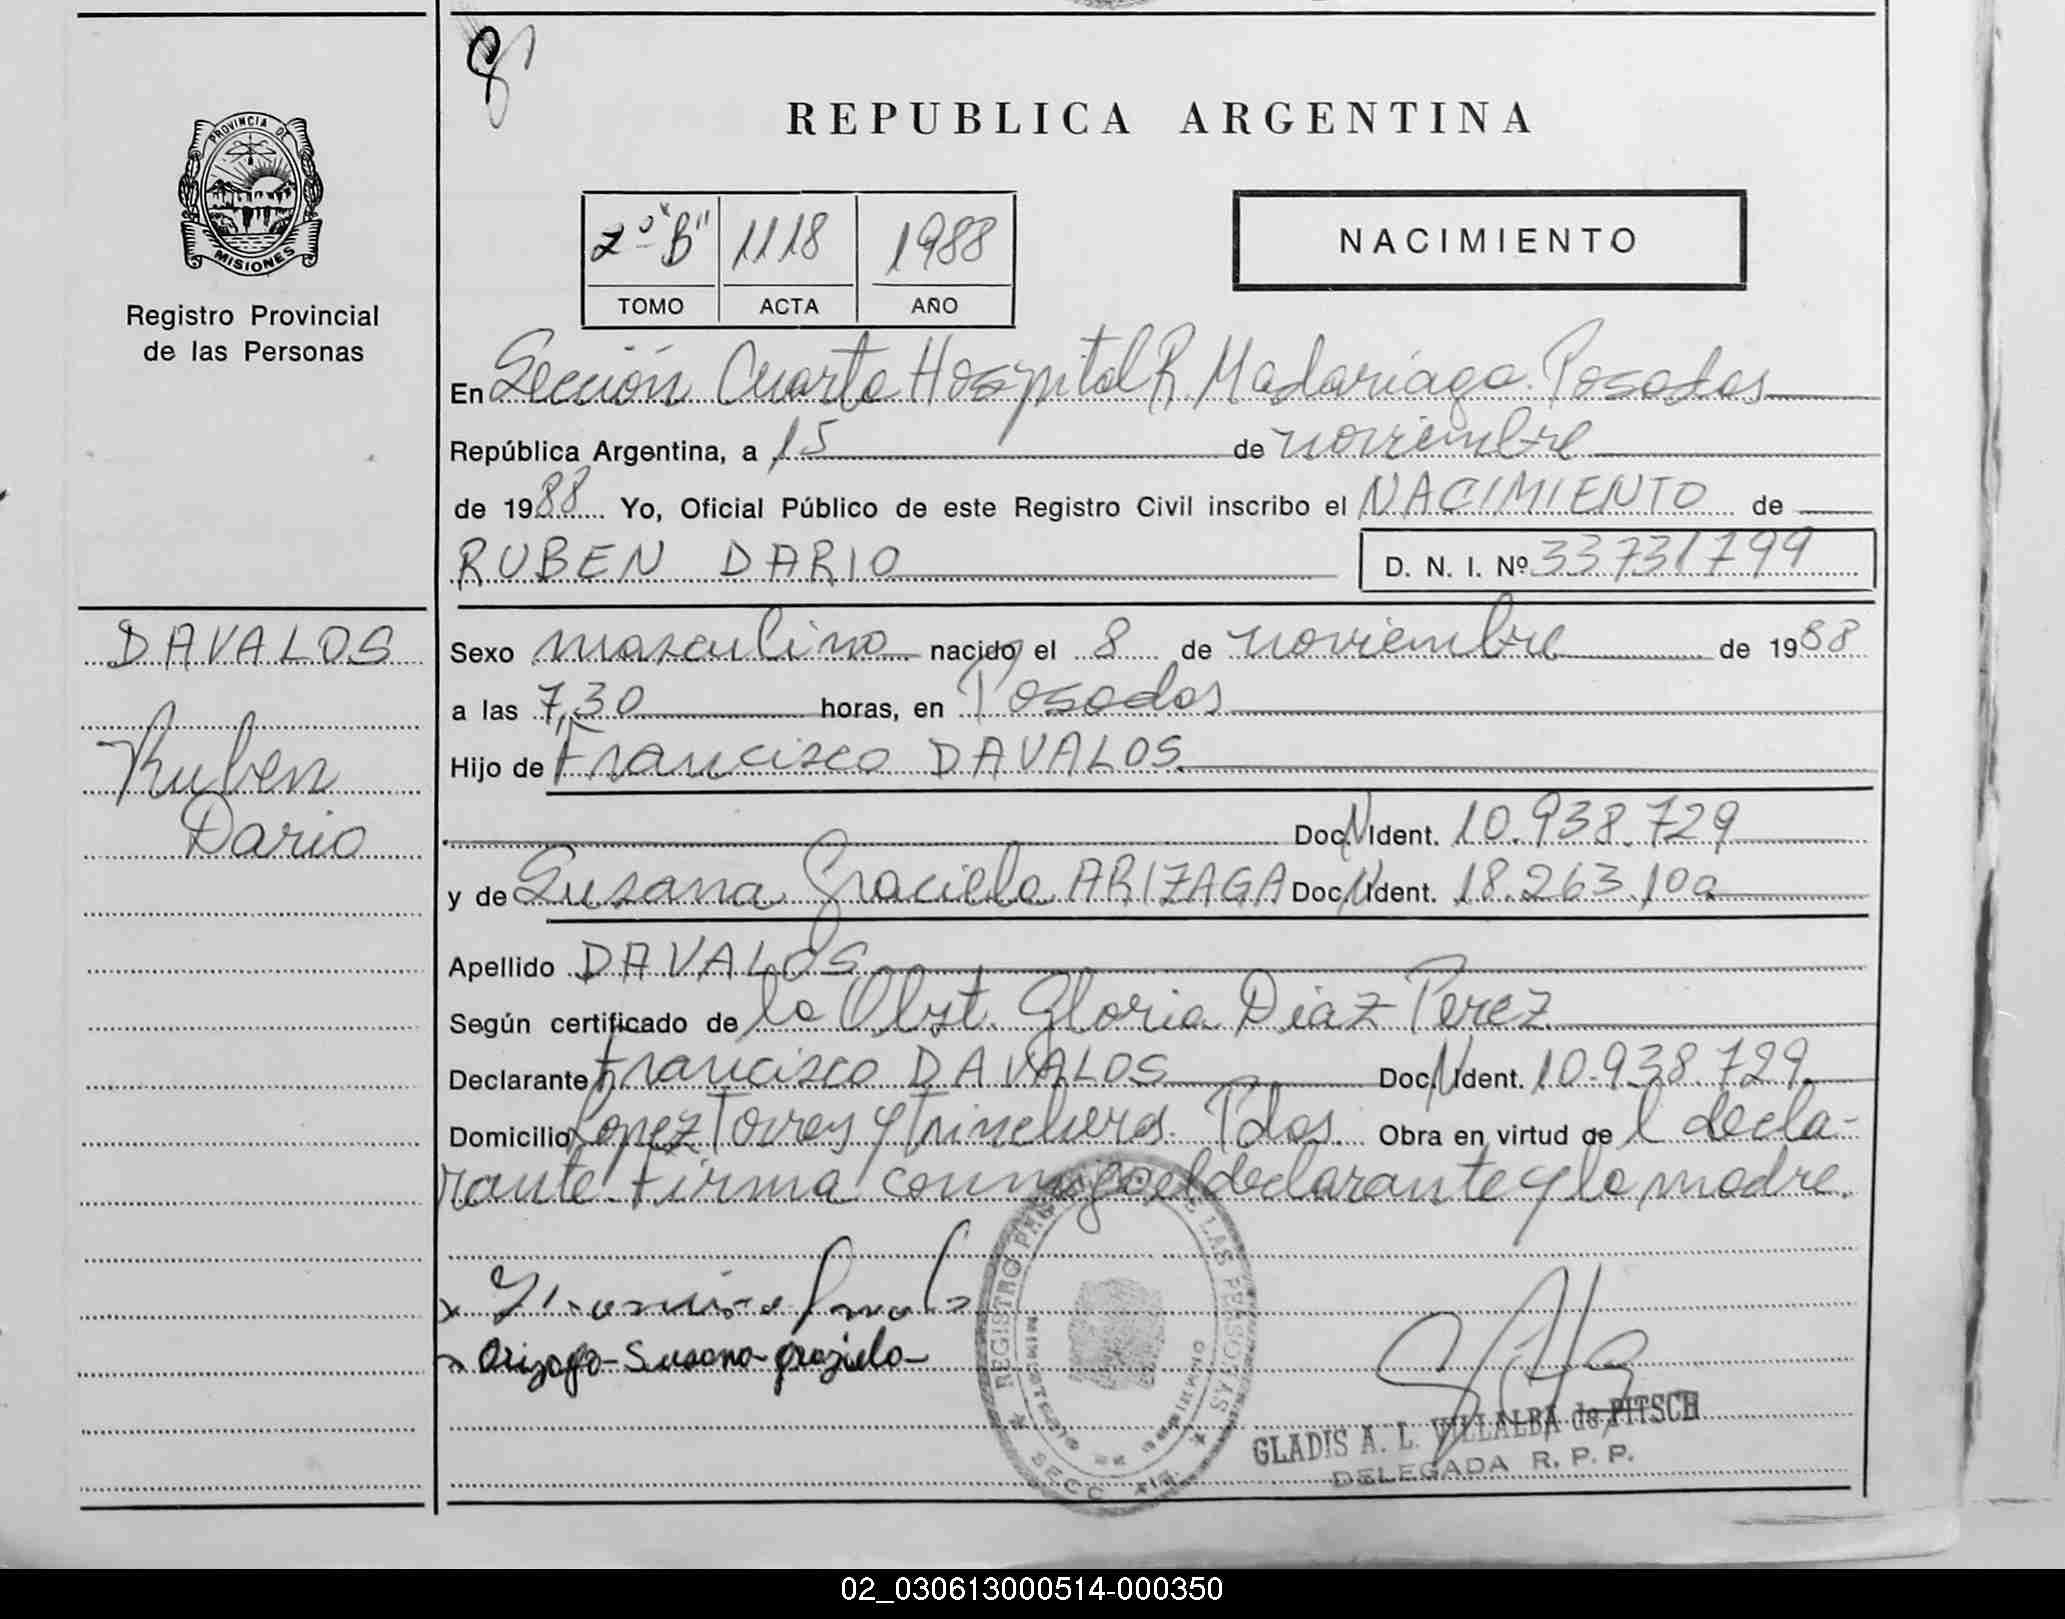 8
PROVINCIA DE
MISIONES
Registro Provincial
de las Personas
DAVALOS
Ruben
Dario
REPUBLICA ARGENTINA
2º "B" 1118 1988
TOMO ACTA AÑO
NACIMIENTO
En Sección Cuarta Hospital R. Madariaga. Posadas
República Argentina, a 15 de noviembre
de 1988 Yo, Oficial Público de este Registro Civil inscribo el NACIMIENTO de
RUBEN DARIO D. N. I. Nº 33731799
Sexo masculino nacido el 8 de noviembre de 1988
a las 7,30 horas, en Posadas
Hijo de Francisco DAVALOS
Doc. N Ident. 10.938.729
y de Susana Graciela ARIZAGA Doc. N Ident. 18.263.10
Apellido DAVALOS
Según certificado de la Obst. Gloria Diaz Perez
Declarante Francisco DAVALOS Doc. N Ident. 10.938.729
Domicilio Lopez Torres y Trincheras. Pdas. Obra en virtud de l decla-
rante. Firma conmigo el declarante y la madre.
Arizaga Susana graziela
REGISTRO DE LAS PERSONAS
SECC
GLADIS A. L. VILLALBA de PITSCH
DELEGADA R. P. P.
02_030613000514-000350